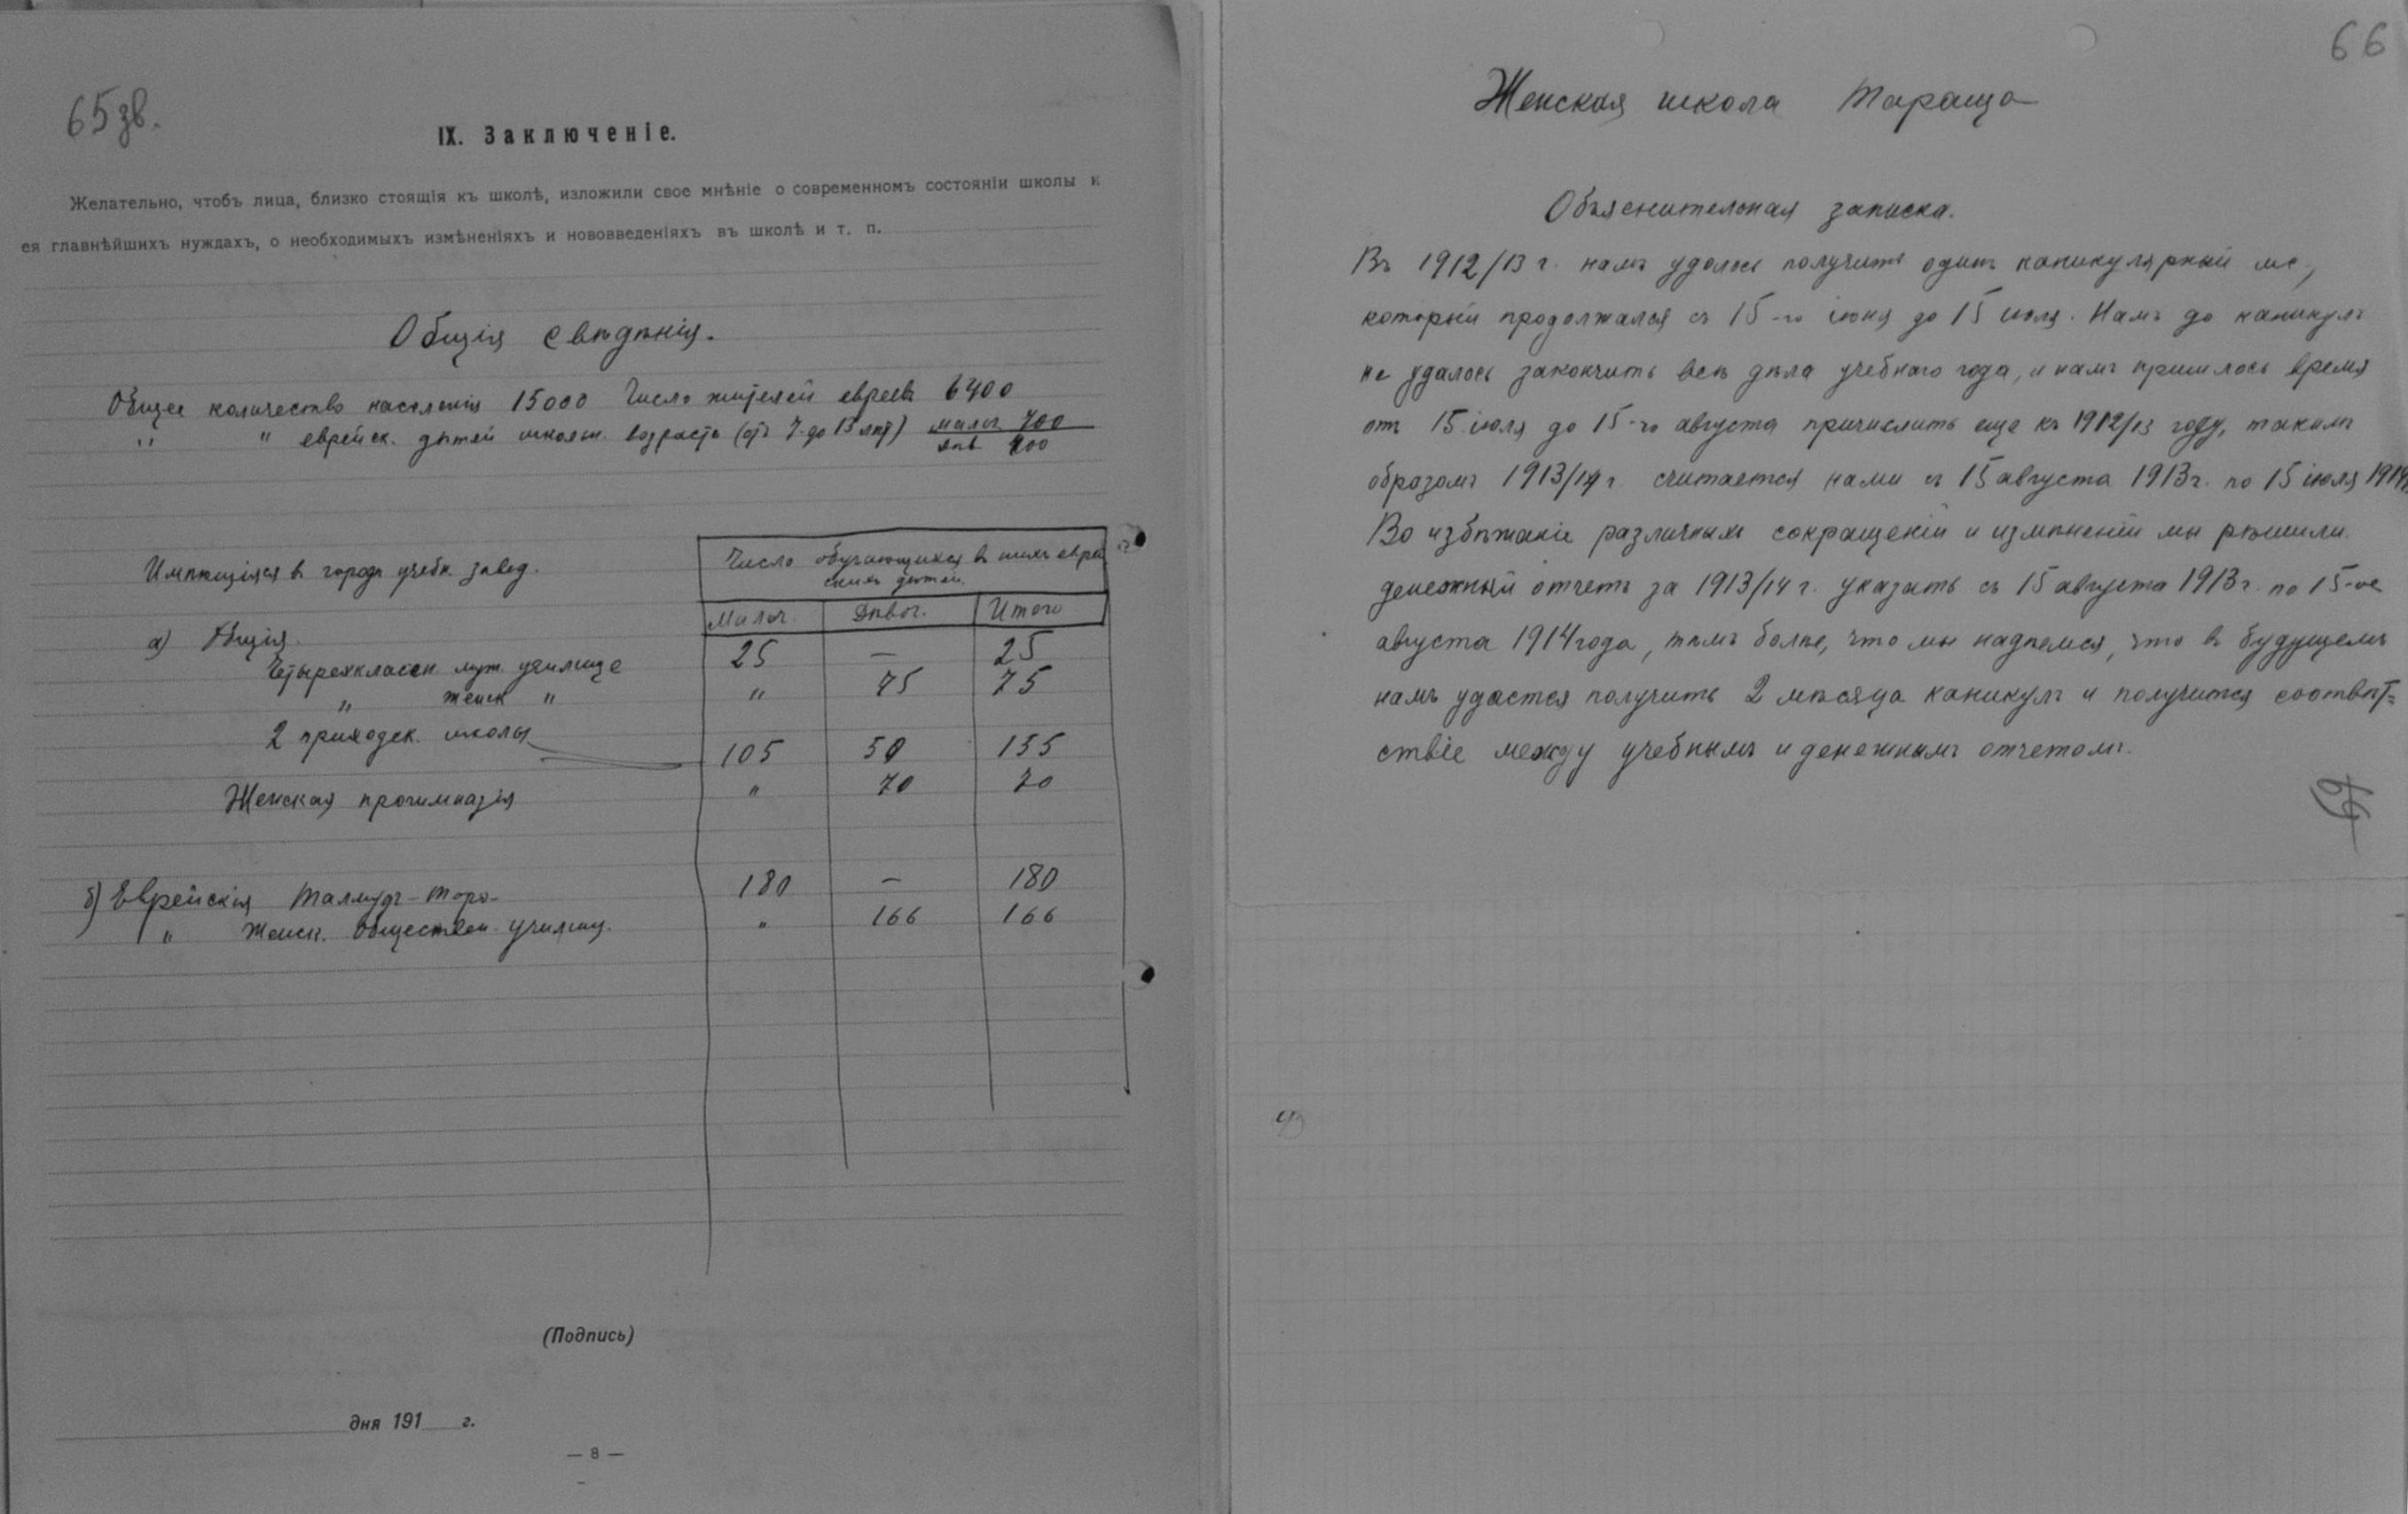 65 зв.
IX. Заключеніе.
Желательно, чтобъ лица, близко стоящія къ школѣ, изложили свое мнѣніе о современномъ состояніи школы и
ея главнѣйшихъ нуждахъ, о необходимыхъ измѣненіяхъ и нововведеніяхъ въ школѣ и т. п.
Общія свѣдѣнія.
Общее количество населенія 15000 Число жителей евреевъ 6400
" " еврейск. дѣтей школьн. возраста (отъ 7 до 13 лѣт) мальч 700
дѣв 400
Имѣющіяся въ городѣ учебн. завед.
Число обучающихся въ нихъ еврей
скихъ дѣтей.
Мальч. Дѣвоч. Итого
а) Общія.
Четырехклассн. муж. училище 25 — 25
" женск " " 75 75
2 приходск. школы 105 50 155
Женская прогимназія " 70 70
б) Еврейскія Талмудъ-Тора 180 — 180
" Женск. Обществен. училищ. " 166 166
(Подпись)
дня 191 г.
— 8 —
66
Женская школа Тараща
Объяснительная записка.
Въ 1912/13 г. намъ удалось получить одинъ каникулярный мс,
который продолжался съ 15-го іюня до 15 июля. Намъ до каникулъ
не удалось закончить всѣ дѣла учебнаго года, и намъ пришлось время
отъ 15 іюля до 15-го августа причислить еще къ 1912/13 году, такимъ
образомъ 1913/14 г. считается нами съ 15 августа 1913 г. по 15 іюля 1914
Во избѣжаніе различныхъ сокращеній и измѣненій мы рѣшили
денежный отчетъ за 1913/14 г. указать съ 15 августа 1913 г. по 15-ое
августа 1914 года, тѣмъ болѣе, что мы надѣемся, что въ будущемъ
намъ удастся получить 2 мѣсяца каникулъ и получится соотвѣт-
ствіе между учебнымъ и денежнымъ отчетомъ.